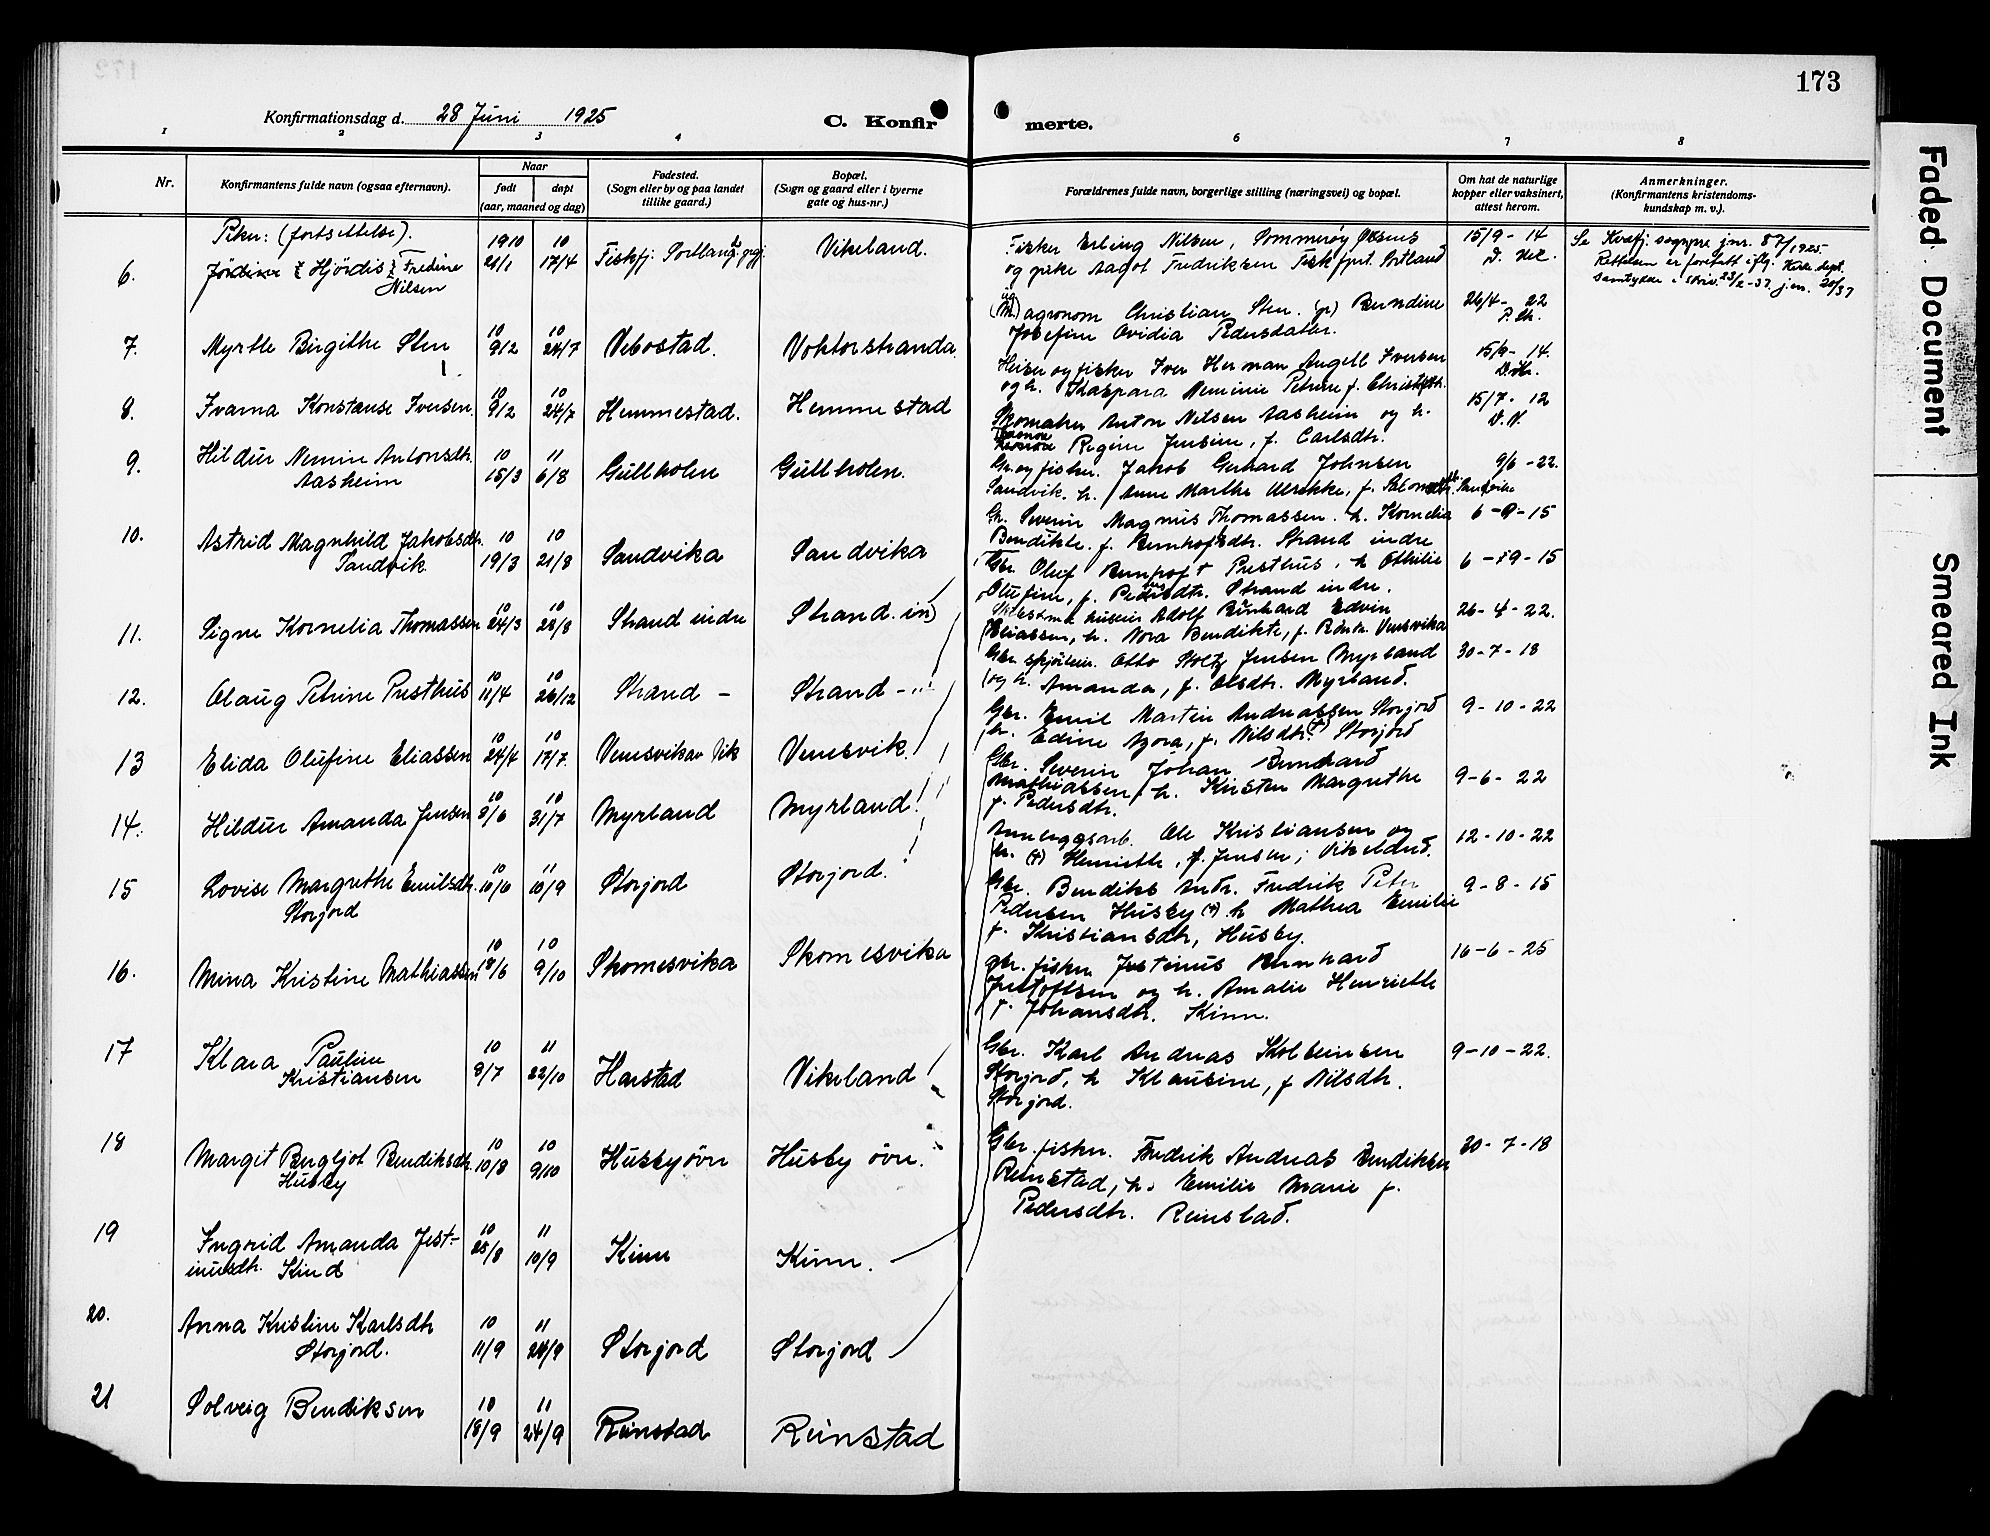 173
Konfirmationsdag d. 28 Juni 1925
C. Konfirmerte.
1 2 3 4 6 7 8
Nr.
Konfirmantens fulde navn (ogsaa efternavn).
Naar
født
døpt
(aar, maaned og dag)
Fødested.
(Sogn eller by og paa landet
tillike gaard.)
Bopæl.
(Sogn og gaard eller i byerne
gate og hus-nr.)
Forældrenes fulde navn, borgerlige stilling (næringsvei) og bopæl.
Om hat de naturlige
kopper eller vaksinert,
attest herom.
Anmerkninger.
(Konfirmantens kristendoms-
kundskap m. v.).
Piker: (fortsettelse).
6. Hjördis Fredine
Nilsen
1910 21/1
10 17/4
Vikeland.
Fisker Erling Nilsen, Sommerøy
og pike Aagot Fredriksen
15/9 - 14
7. Myrtle Birgithe Sten
10 9/2
10 24/7
Vebostad.
Voktorstranda
agronom Christian Sten. Berndine
Josefine Ovidia Pedersdatter.
26/4 - 22
8. Ivarna Konstanse Iversen.
10 9/2
10 24/7
Hemmestad.
Hemmestad
og fisker Iver Herman Angell Iversen
og h. Kaspara
15/9 - 14.
9. Hildur Nemine Antonsdtr.
Aasheim
10 15/3
11 6/8
Gullholen
Gullholen.
Skomaker Anton Nilsen Aasheim og h.
Regine Jensine, f. Carlsdtr.
15/7 - 12
10. Astrid Magnhild Jakobsdtr.
Sandvik
10 19/3
10 21/8
Sandvika
Sandvika
Gbr. og fisker. Jakob Gerhard Johnsen
Sandvik. h. Anne Marthe Ulrikke, f.
9/6 - 22.
11. Signe Kornelia Thomassen
10 24/3
10 28/8
Strand indre
Strand. in)
Gbr. Severin Magnus Thomassen. h. Kornelia
Bendikte. f. Strand indre
6 - 9 - 15
12. Olaug Petrine Presthus
10 11/4
10 26/12
Strand -
Strand -
Gbr. Oluf Bernhoft Presthus. h Othilie
Olufine, f. Pedersdtr. Strand indre.
6 - 9 - 15
13 Elida Olufine Eliassen
10 24/4
10 17/7
Vensvik.
Adolf Bernhard Edvin
Eliassen, h. Nora Bendikte, f.
26 - 4 - 22.
14. Hildur Amanda Jensen
10 8/6
10 31/7
Myrland
Myrland
Gbr. Otto Stoltz Jensen Myrland
og h. Amanda, f. Olsdtr. Myrland.
30 - 7 - 18
15 Lovise Margrethe Emilsdtr.
Storjord
10 10/6
11 10/9
Storjord
Storjord.
Gbr. Emil Martin Andreassen Storjord
h. Edine Azora, f. Nilsdtr. Storjord
9 - 10 - 22
16. Mina Kristine Mathiassen
10 18/6
10 9/10
Skomesvika
Skomesvika
Gbr. Severin Johan Bernhard
Mathiassen, h. Kristen Margrethe
f. Pedersdtr.
9 - 6 - 22
17 Klara Pauline
Kristiansen
10 8/7
11 22/10
Harstad
Vikeland
Anleggsarb. Ole Kristiansen og
h. (+) Henriette, f. Jensen; Vikeland.
12 - 10 - 22
18 Margit Bergljot Bendiksdtr.
Husby
10 10/8
10 9/10
Husby övre
Husby övre.
Gbr. Bendikt Andr. Fredrik Peter
Pedersen Husby (+). h Mathea Emilie
f. Kristiansdtr, Husby.
9 - 8 - 15
19 Ingrid Amanda Just-
inusdtr. Kind
10 25/8
11 10/9
Kinn
Kinn.
gbr. fisker Justinus Bernhard
Justoffsen og h. Amalie Henriette
f. Johansdtr. Kinn.
16 - 6 - 25
20. Anna Kristine Karlsdtr
Storjord.
10 11/9
11 24/9
Storjord
Storjord
Gbr. Karl Andreas Kolbeinsen
Storjord, h Klausine, f Nilsdtr.
Storjord.
9 - 10 - 22.
21 Solveig Bendiksen
10 18/9
11 24/9
Reinstad
Reinstad
Gbr. fisker. Fredrik Andreas Bendiksen
Reinstad, h. Emilie Marie f.
Pedersdtr. Reinstad.
30 - 7 - 18
Faded Document
Smeared Ink